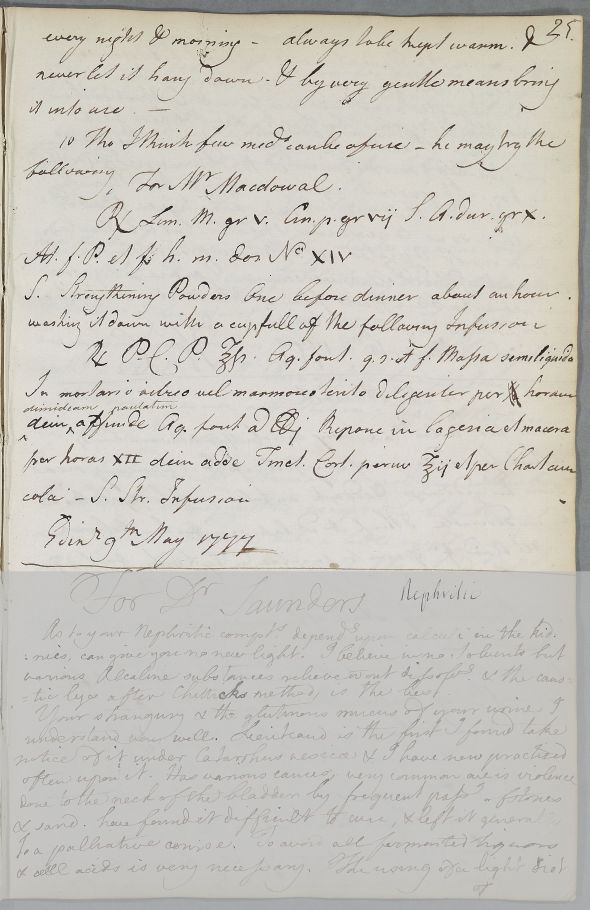 25.
every night & morning - always to be kept warm. &
never let it hang down - & by very gentle means bring
it into use. —
10 Tho I think few meds can be of use - he may try the
following, For Mr Macdowal.
℞ Lim. M. gr v. Cin. p. gr vij S. A. dur. gr x.
Ad. f. P. et f. h. m. dos No XIV
S. Strengthening Powders One before dinner about an hour.
washing it down with a cupfull of the following Infusion
℞ P. C. P. ℥ſs. Aq. font. q. s. ut f. Massa semiliquida
In mortario vitreo vel marmoreo terito diligenter per horam
dimidiam paulatim
dein affunde Aq. font ad ℔j Repone in lagena et macera
per horas XII dein adde Tinct. Cort. peruv ℥ij et per Chartam
cola - S. Str. Infusion
Edinr 9th May 1777
For Dr Saunders Nephritic
As to your Nephritic compts dependg upon calculi in the kid
:nies, can give you no new light. I believe in no Solvents but
various Alcaline substances relieve without dissolvg. & the caus=
=tic lye after Chitticks method, is the best.
Your strangury & the glutinous mucus of your urine I
understand very well. Lieutaud is the first I found take
notice of it under Catarrhus vesicæ & I have now practised
often upon it. Has various causes, very common one is violence
done to the neck of the bladder by frequent passg of stones
& sand. have found it difficult to cure, & left it generally
to a palliative course. To avoid all fermented liquors
& all acids is very necessary. The using of a light diet
of